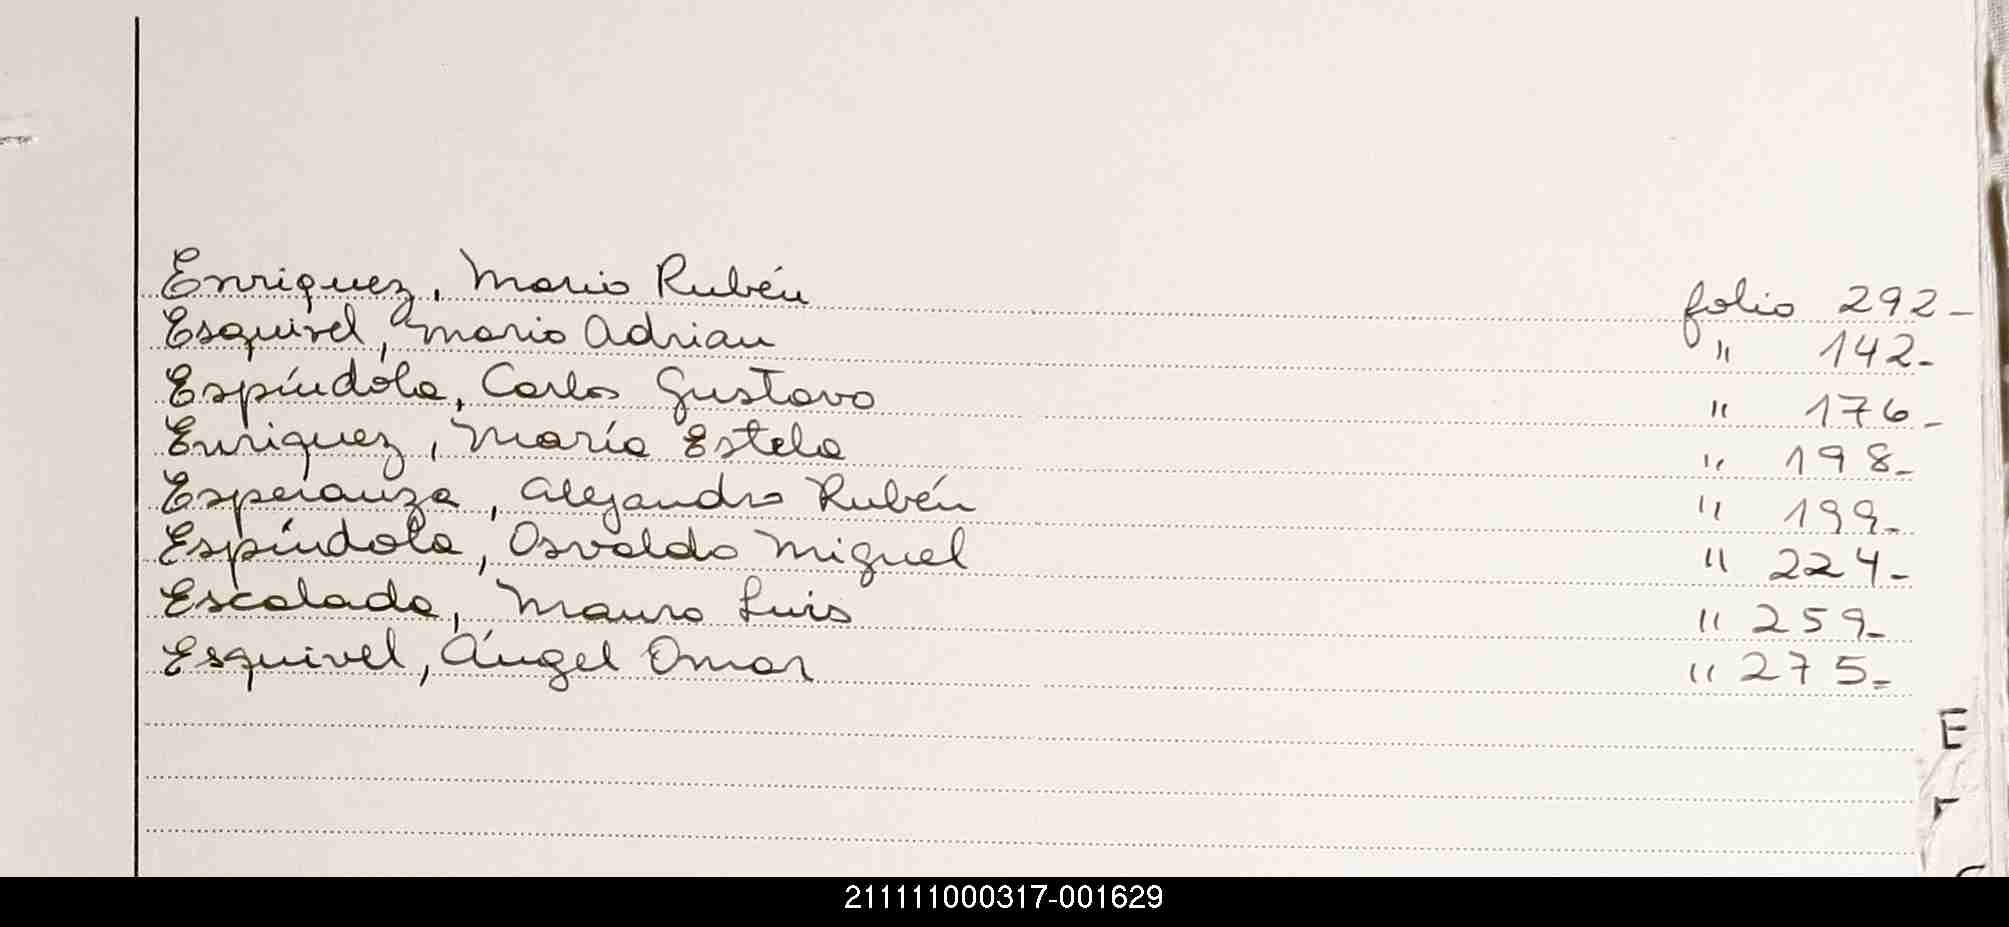 Enriquez, Mario Rubén folio 292-
Esquivel, Mario Adrian " 142-
Espíndola, Carlos Gustavo " 176-
Enriquez, María Estela " 198-
Esperanza, Alejandro Rubén " 199-
Espíndola, Osvaldo Miguel " 224-
Escalada, Mauro Luis " 259-
Esquivel, Ángel Omar " 275=
E
F
211111000317-001629